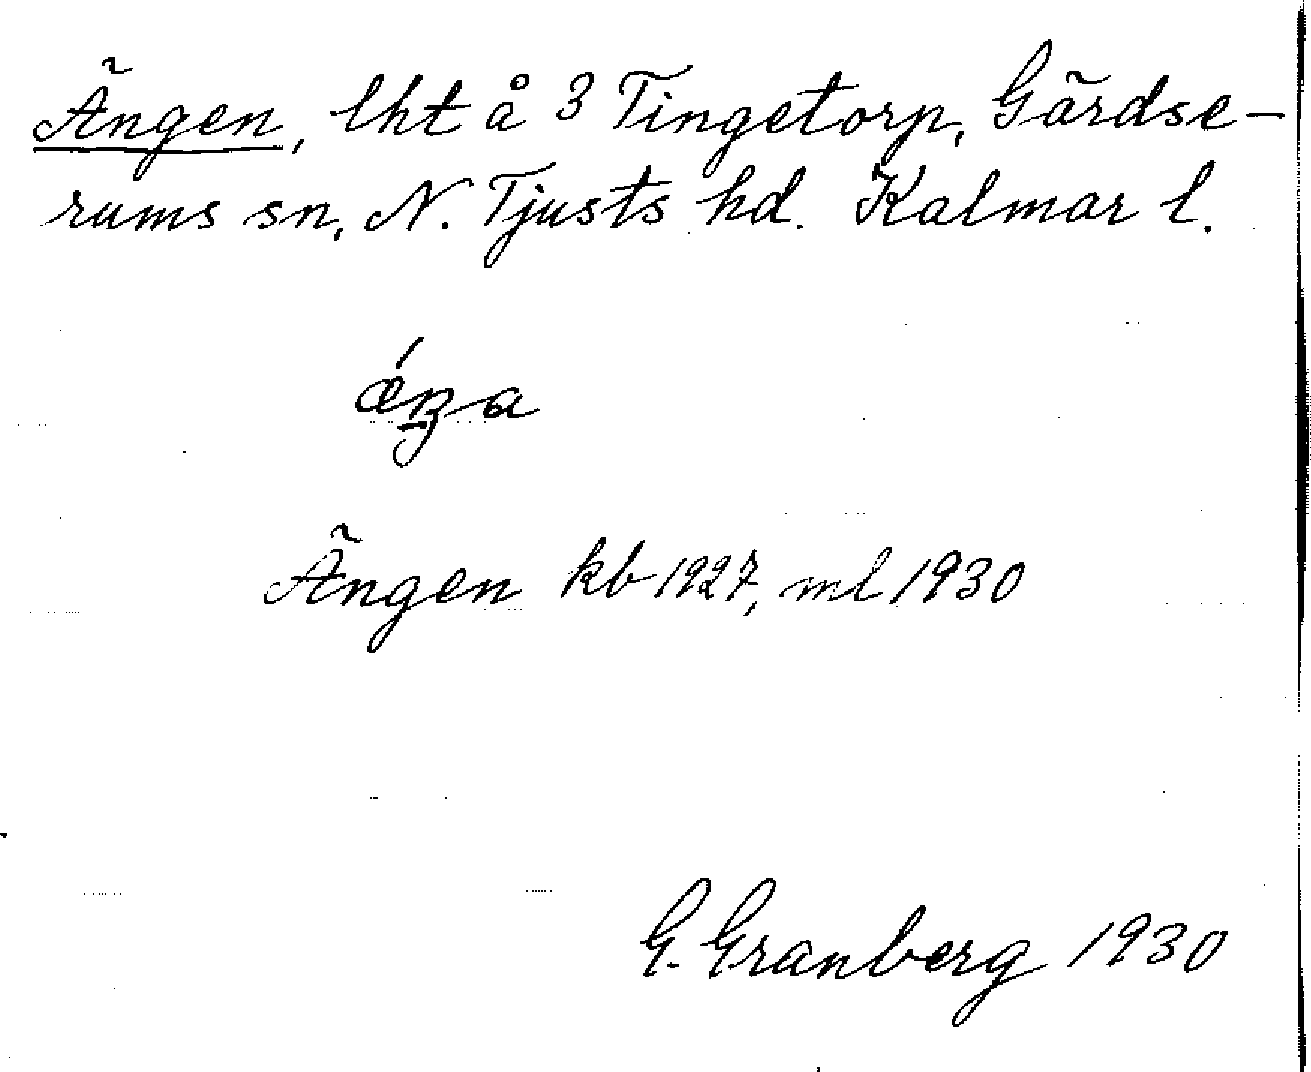 Ängen, lht å 3 Tingetorp, Gärdse-
rums sn, N. Tjusts hd. Kalmar l.
Ängen kb 1927, ml 1930
G. Granberg 1930